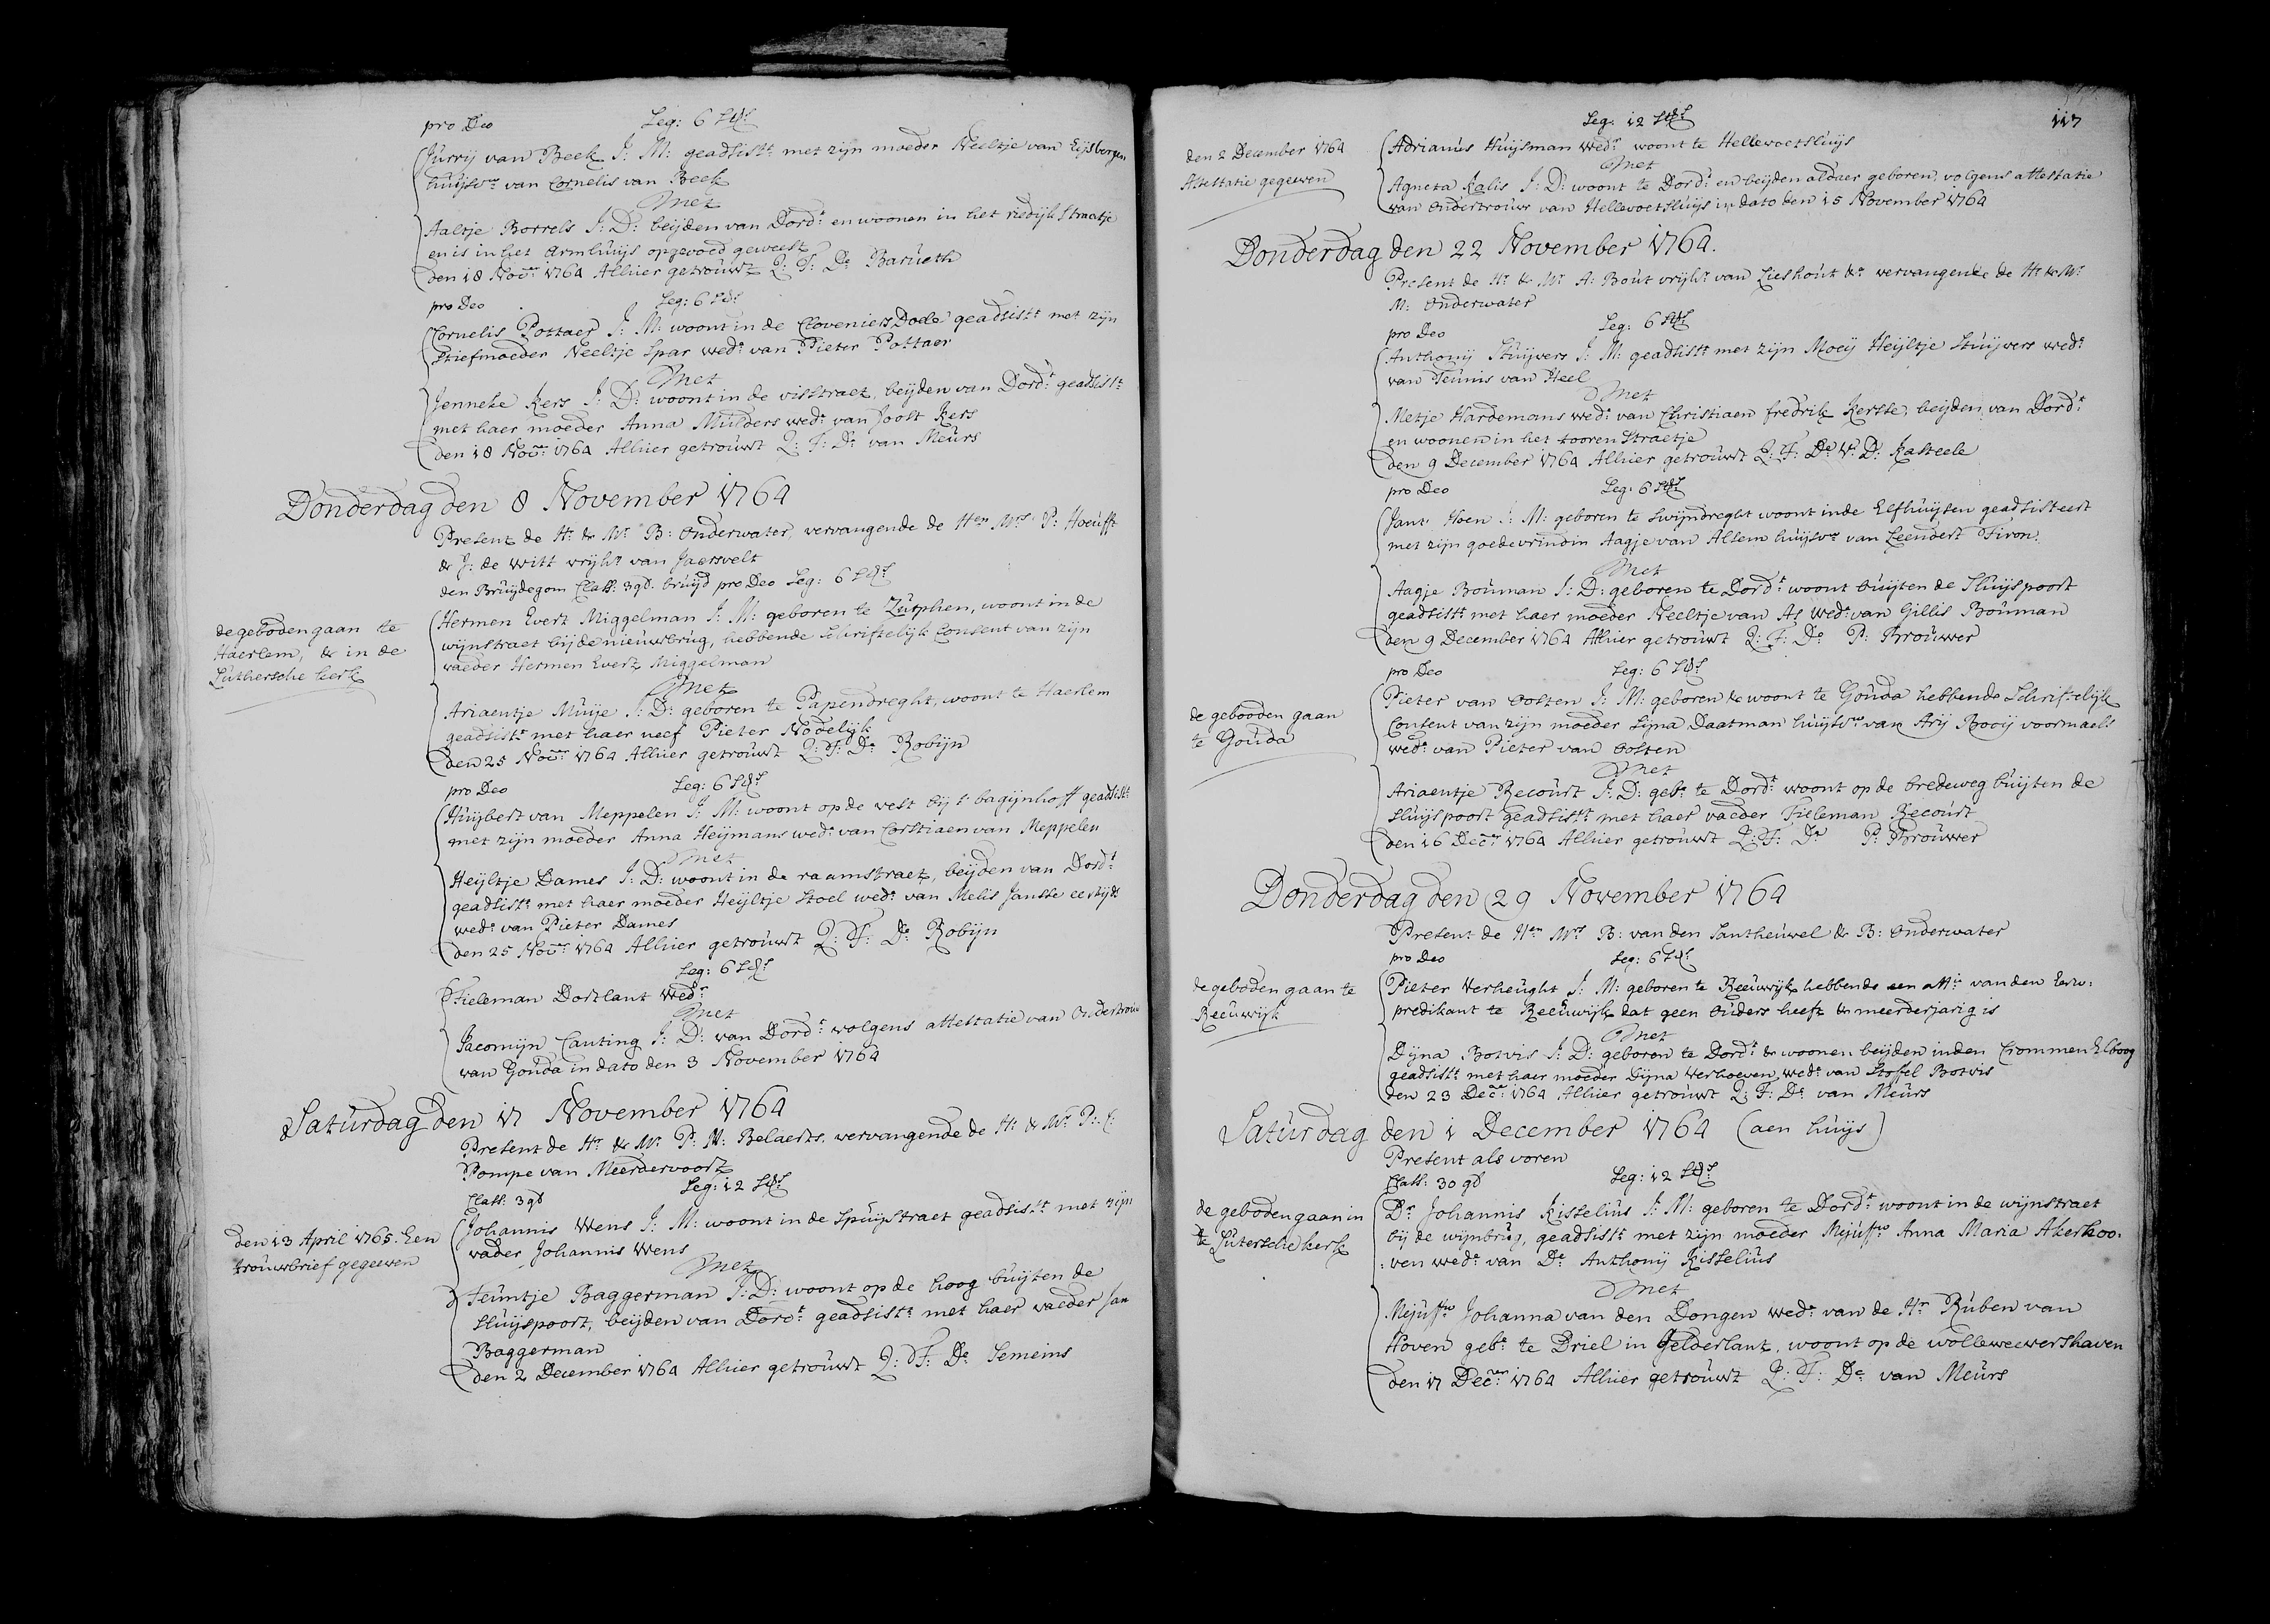 pro Deo Leg: 6 Sts
Jurrij van Beek J: M: geadsistt met zijn moeder Neeltje van Eijsbergen
huijsvr van Cornelis van Beek
met
Aaltje Borrels J: D: beijden van Dordt en woonen in het riedijk straatje
en is in het armhuijs opgevoed geweest
den 18 Novr 1764 Alhier getrouwt Q: T: Do Barueth
pro Deo Leg: 6 Sts
Cornelis Pottaer J: M: woont in de Cloveniers Doele geadsistt met zijn
Stiefmoeder Neeltje Spar wede van Pieter Pottaer
met
Jenneke Kers J: D: woont in de visstraet, beijden van Dordt geadsistt
met haer moeder Anna Mulders wede van Joost Kers
den 18 Novr 1764 Alhier getrouwt Q: T: Do van Meurs
Donderdag den 8 November 1764
Present de Hr & Mr B: Onderwater, vervangende de Hen Mrs P: Hoeufft
& J: de Witt vrijhr van Jaersvelt
den Bruijdegom Class: 3 gd. bruijd pro Deo Leg: 6 Sts
de geboden gaan te
Haerlem, & in de
Luthersche kerk
Hermen Evert Miggelman J: M: geboren te Zutphen, woont in de
wijnstraet bij de nieuwbrug, hebbende Schriftelijk Consent van zijn
vaeder Hermen Evert Miggelman
met
Ariaentje Muije J: D: geboren te Papendreght, woont te Haerlem
geadsistt met haer neef Pieter Nodelijk
den 25 Novr 1764 Alhier getrouwt Q: T: Do Robijn
pro Deo Leg: 6 Sts
Huijbert van Meppelen J: M: woont op de vest bij 't bagijnhoff geadsistt
met zijn moeder Anna Heijmans wede van Corstiaen van Meppelen
met
Heijltje Dames J: D: woont in de raamstraet, beijden van Dordt
geadsistt met haer moeder Heijltje Stoel wede van Melis Jansse eertijds
wede van Pieter Dames
den 25 Novr 1764 Alhier getrouwt Q: T: Do Robijn
Leg: 6 Sts
Tieleman Dortlant Wedr
met
Jacomijn Canting J: D: van Dordt volgens attestatie van Ondertrouw
van Gouda in dato den 3 November 1764
Saturdag den 17 November 1764
Present de Hr & Mr P: M: Belaerts, vervangende de Hr & Mr P: C:
Pompe van Meerdervoort
Class: 3 gd Leg: 12 Sts
den 13 April 1765. Een
trouwbrief gegeeven
Johannis Wens J: M: woont in de Spuijstraet geadsistt met zijn
vader Johannis Wens
met
Teuntje Baggerman J: D: woont op de hoog buijten de
Sluijspoort, beijden van Dordt geadsistt met haer vaeder Jan
Baggerman
den 2 December 1764 Alhier getrouwt Q: T: Do Semeins
117
Leg: 12 Sts
den 2 December 1764
Attestatie gegeeven
Adrianus Huijsman Wedr woont te Hellevoetsluijs
met
Agneta Kalis J: D: woont te Dordt en beijden aldaer geboren, volgens attestatie
van Ondertrouw van Hellevoetsluijs in dato den 15 November 1764
Donderdag den 22 November 1764.
Present de Hr & Mr A: Bout vrijhr van Lieshout &a vervangende de Hr & Mr
M: Onderwater
pro Deo Leg: 6 Sts
Anthonij Stuijvers J: M: geadsistt met zijn Moeij Heijltje Stuijvers wede
van Teunis van Heel
met
Metje Hardemans wede van Christiaen fredrik Kerste, beijden van Dordt
en woonen in het tooren Straetje
den 9 December 1764 Alhier getrouwt Q: T: Do W: D: Kasteele
pro Deo Leg: 6 Sts
Jant Hoen J: M: geboren te Swijndreght woont inde Elfhuijsen geadsisteert
met zijn goede vrindin Aagje van Alsem huijsvr van Leendert Tivon.
met
Aagje Bouman J: D: geboren te Dordt woont buijten de Sluijspoort
geadsistt met haer moeder Neeltje van As wede van Gillis Bouman
den 9 December 1764 Alhier getrouwt Q: T: Do P: Brouwer
pro Deo Leg: 6 Sts
de gebooden gaan
te Gouda
Pieter van Oosten J: M: geboren & woont te Gouda hebbende Schriftelijk
Consent van zijn moeder Sijna Daatman huijsvr van Arij Rooij voormaels
wede van Pieter van Oosten
met
Ariaentje Recourt J: D: gebe te Dordt woont op de bredeweg buijten de
Sluijspoort geadsistt met haer vaeder Tieleman Recourt
den 16 Decr 1764 Alhier getrouwt Q: T: Do P: Brouwer
Donderdag den 29 November 1764
Present de Hen Mrs B: van den Santheuvel & B: Onderwater
pro Deo Leg: 6 Sts
de geboden gaan te
Reeuwijk
Pieter Verheught J: M: geboren te Reeuwijk hebbende een atte van den Eerw:
predikant te Reeuwijk dat geen Ouders heeft & meerderjarig is
met
Dijna Botvis J: D: geboren te Dordt & woonen beijden inden Crommen Elboog
geadsistt met haer moeder Dijna Verhoeven wede van Stoffel Botvis
den 23 Decr 1764 Alhier getrouwt Q: T: Do van Meurs
Saturdag den 1 December 1764 (aen huijs)
Present als voren
Class: 30 gd Leg: 12 Sts
de geboden gaan in
de Lutersche kerk
Dr Johannis Kisselius J: M: geboren te Dordt woont in de wijnstraet
bij de wijnbrug, geadsistt met zijn moeder Mejuffw Anna Maria Akerhoo-
:ven wede van Dr Anthonij Kisselius
met
Mejuffw Johanna van den Dongen wede van de Hr Ruben van
Hoven gebe te Driel in Gelderlant, woont op de wolleweevershaven
den 17 Decr 1764 Alhier getrouwt Q: T: Do van Meurs